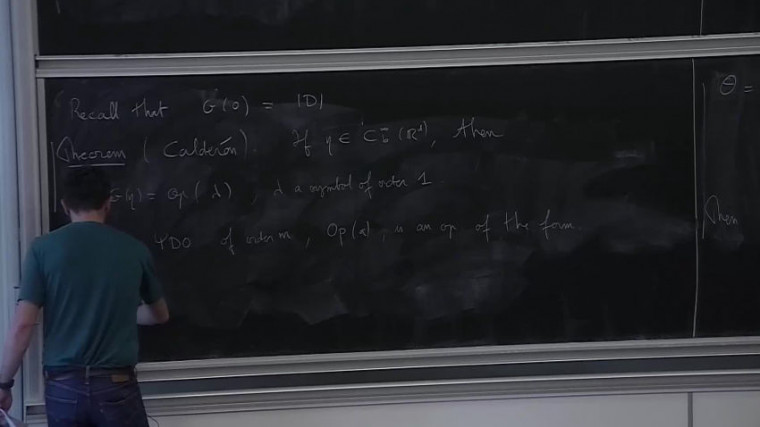 Recall that G(0) = |D|
Theorem (Calderón). If η ∈ C_b^∞(ℝ^d), then
G(η) = Op(λ), λ a symbol of order 1.
ΨDO of order m, Op(a), is an op of the form.
θ =
Then